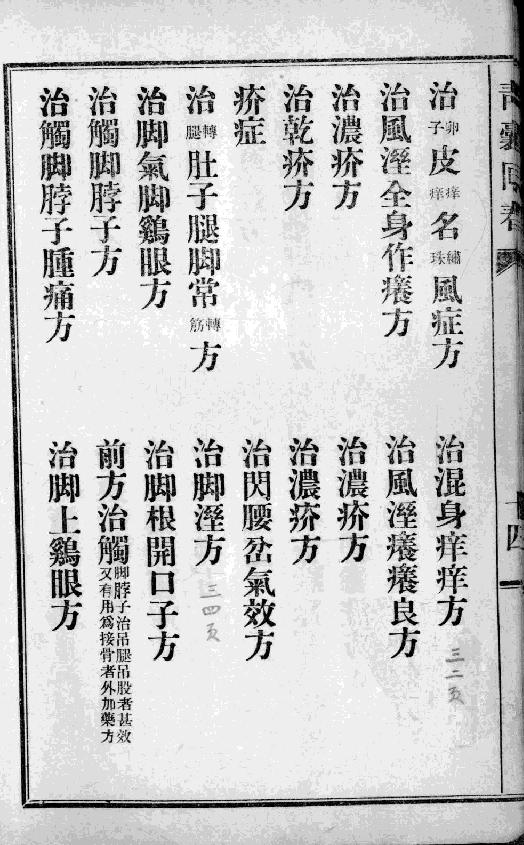 治卵子皮痒痒名繡珠風症方
治混身痒痒方
三二页
治風溼全身作癢方
治風溼癢癢良方
治濃疥方
治濃疥方
治乾疥方
治濃疥方
疥症
治閃腰岔氣效方
治轉腿肚子腿脚常轉筋方
治脚溼方
三四页
治脚氣脚鷄眼方
治脚根開口子方
治觸脚脖子方
前方治觸脚脖子治吊腿吊股者甚效又有用為接骨者外加藥方
治觸脚脖子腫痛方
治脚上鷄眼方
四